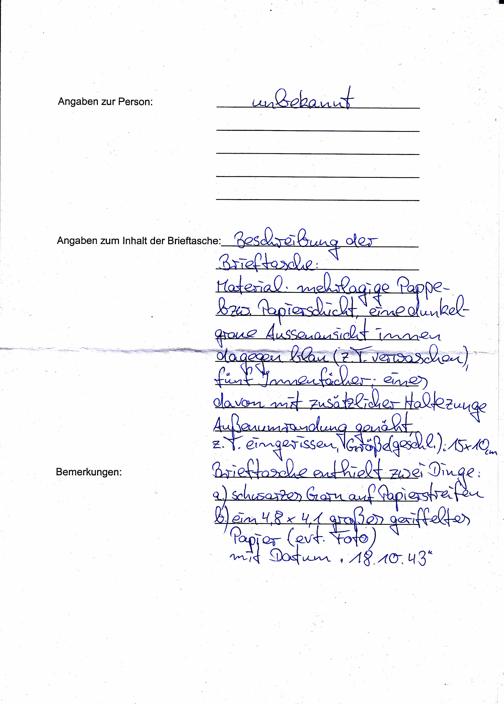 Angaben zur Person: unbekannt
Angaben zum Inhalt der Brieftasche: Beschreibung der
Brieftasche:
Material: mehrlagige Pappe-
bzw. Papierschicht, eine dunkel-
graue Aussenansicht innen
dagegen blau (z.T. verwaschen),
fünf Innenfächer: eines
davon mit zusätzlicher Haltezunge
Außenumrandung genäht,
z.T. eingerissen, Größe(geschl.): 15x10cm
Bemerkungen: Brieftasche enthielt zwei Dinge:
a) schwarzes Garn auf Papierstreifen
b) ein 4,8 x 4,1 großes geriffeltes
Papier (evt. Foto)
mit Datum "18.10.43"